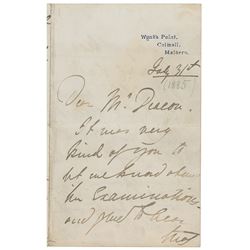 Wynd's Point,
Colwall,
Malvern.
July 31st
(1885
Dear Mr. Deacon.
It was very
kind of you to
let me know about
the Examinations
and glad to hear
that